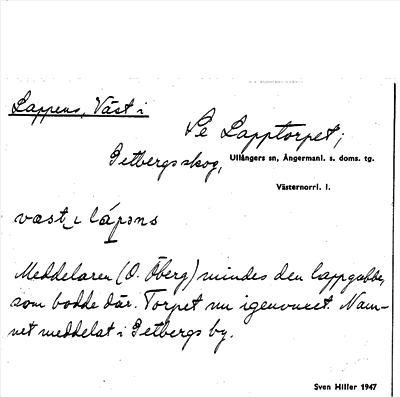 Lappens, Väst i
Se Lapptorpet,
Getbergsskog, Ullångers sn, Ångermanl. s. doms. tg.
Västernorrl. l.
væst i lápəns
Meddelaren (O. Öberg) mindes den lappgubbe,
som bodde där. Torpet nu igenvuxet. Nam-
net meddelat i Getbergs by.
Sven Hiller 1947